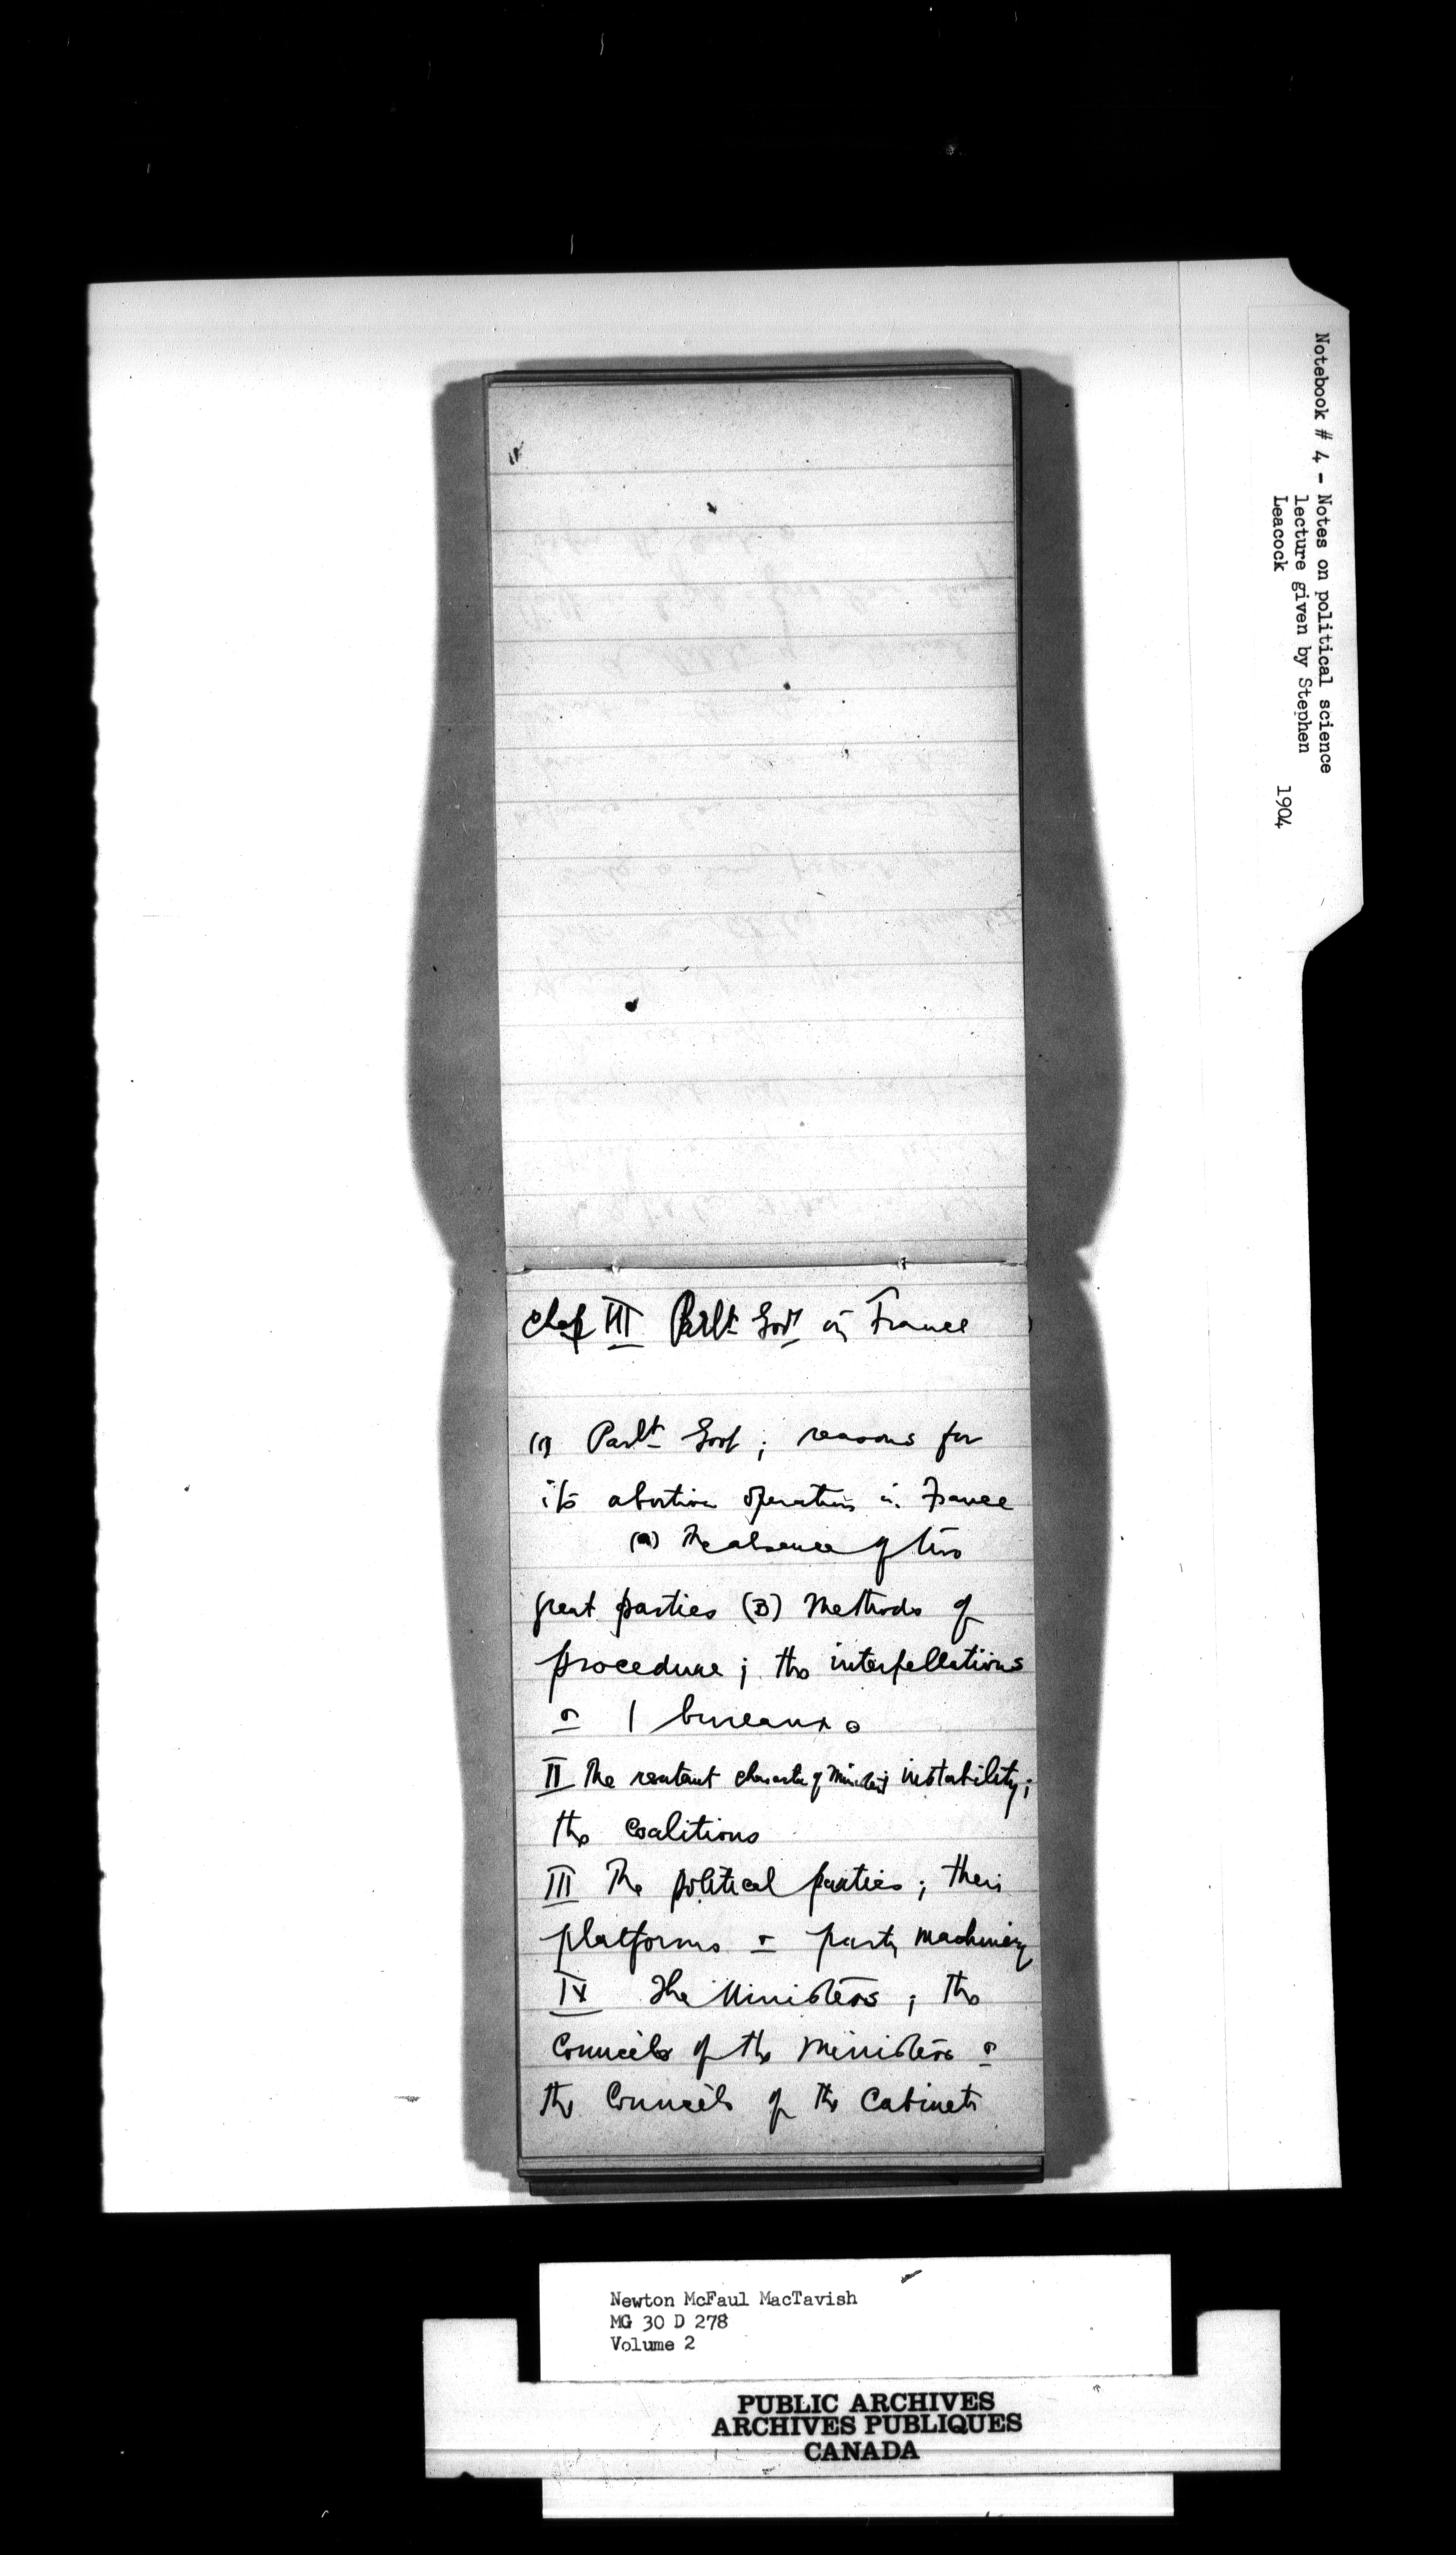 Notebook # 4 - Notes on political science
lecture given by Stephen
Leacock
1904
Chap III Parlt Govt in France
(1) Parlt Govt ; reasons for
its abortive operation in France
(a) The absence of two
great parties (B) Methods of
procedure ; the interpellations
bureaux.
II The resultant character of instability ;
the coalitions
III The political parties ; their
platforms & party machinery
IV The Ministers ; the
Councils of the Ministers &
the Councils of the Cabinets
Newton McFaul MacTavish
MG 30 D 278
Volume 2
PUBLIC ARCHIVES
ARCHIVES PUBLIQUES
CANADA